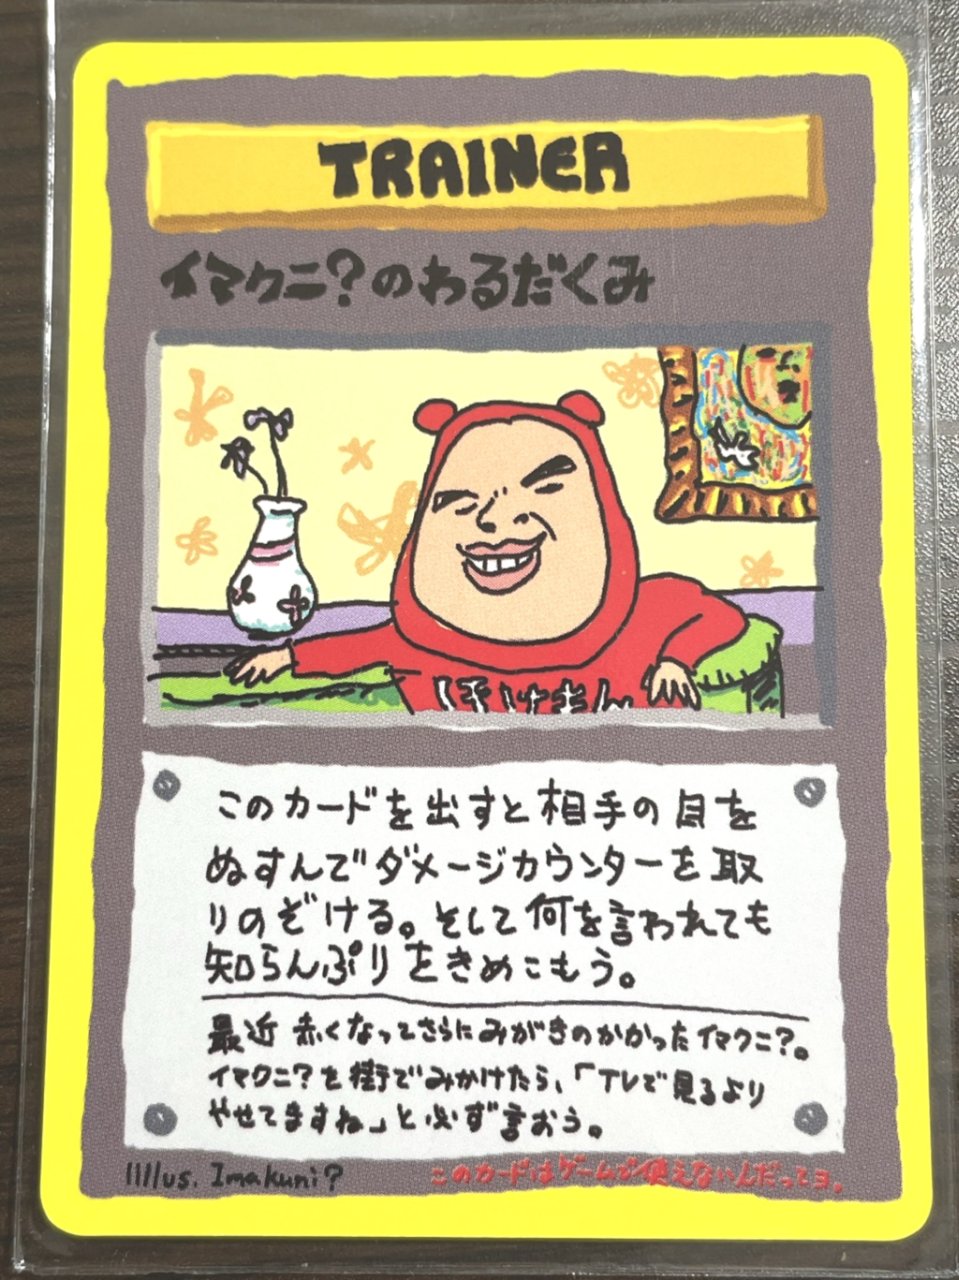 TRAINER
イマクニ?のわるだくみ
ほけきん
このカードを出すと相手の目を
ぬすんでダメージカウンターを取
りのぞける。そして何を言われても
知らんぷりをきめこもう。
最近 赤くなってさらにみがきのかかったイマクニ?。
イマクニ?を街でみかけたら、「テレビで見るより
やせてますね」と必ず言おう。
Illus. Imakuni?
このカードはゲームで使えないんだってヨ。